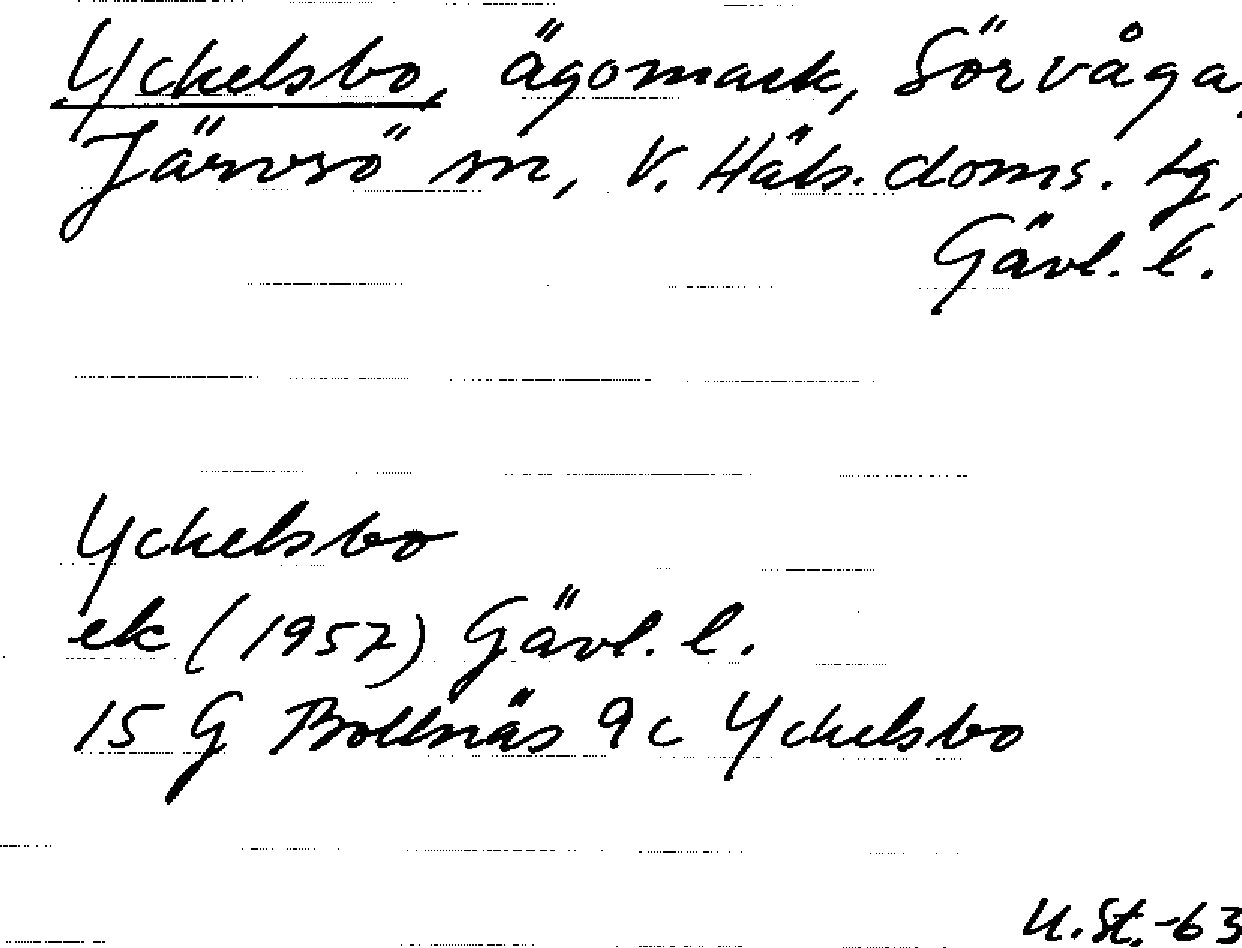 Yckelsbo, ägomark, Sörvåga,
Järvsö sn, V. Häls. doms. tg,
Gävl. l.
Yckelsbo
ek (1957) Gävl. l.
15 G Bollnäs 9c Yckelsbo
U.St.-63